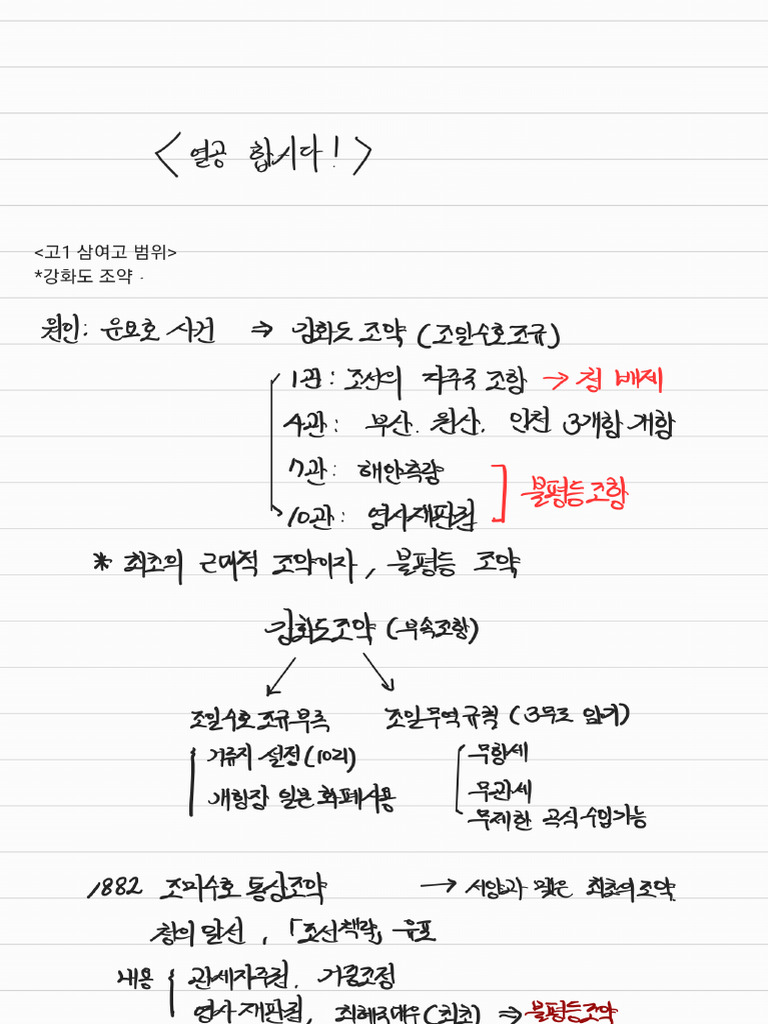 <열공 합시다!>
<고1 삼여고 범위>
*강화도 조약 -
원인: 운요호 사건 ⇒ 강화도 조약 (조일수호조규)
1관: 조선의 자주국 조항 → 청 배제
4관: 부산. 원산. 인천 3개항 개항
7관: 해안측량
10관: 영사재판권
불평등조항
* 최초의 근대적 조약이자, 불평등 조약
강화도조약 (부속조항)
조일수호 조규부록 조일무역규칙 (3무로 암기)
거류지 설정(10리) 무항세
개항장 일본 화폐사용 무관세
무제한 곡식수입가능
1882 조미수호 통상조약 → 서양과 맺은 최초의 조약
청의 알선, 「조선책략」 유포
내용 관세자주권, 거중조정
영사 재판권, 최혜국대우(최초) ⇒ 불평등조약